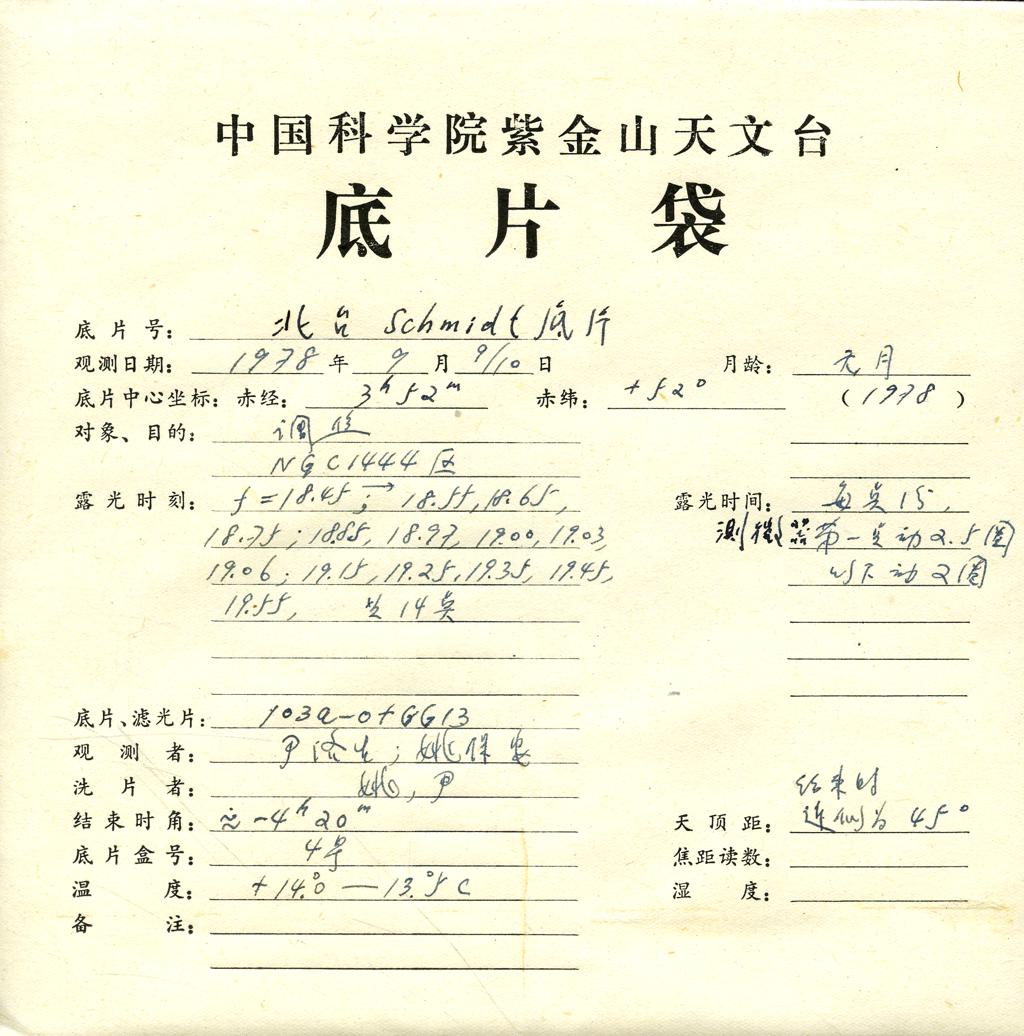 中国科学院紫金山天文台
底片袋
底片号：北台 Schmidt 底片
观测日期：1978年 9月 9/10日 月龄：无月
底片中心坐标：赤经：3h52m 赤纬：+52° (1978)
对象、目的：调焦
NGC1444区
露光时刻：f=18.45；→ 18.55, 18.65, 露光时间：每点15,
18.75；18.85, 18.97, 19.00, 19.03, 测微器第一点动2.5圈
19.06；19.15, 19.25, 19.35, 19.45, 以下动2圈
19.55, 14点
底片、滤光片：103a-O+GG13
观测者：尹 ；姚保安
洗片者：姚, 尹 结束时
结束时角：≈-4h20m 天顶距：近似为45°
底片盒号：4号 焦距读数：
温度：+14.°0—13.°5C 湿度：
备注：